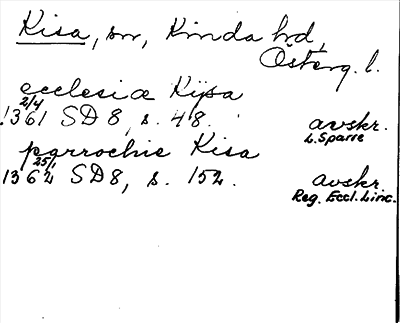 Kisa, sn, Kinda hd,
Österg. l.
ecclesiæ Kijsa
2/4
1361 SD8, s. 48. avskr.
L. Sparre
parrochie Kisa
25/1
1362 SD8, s. 152. avskr.
Reg. Eccl. Linc.